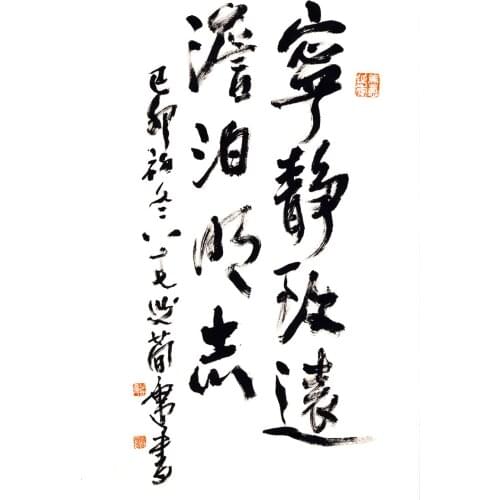 寧静致遠
澹泊明志
己卯初冬
書